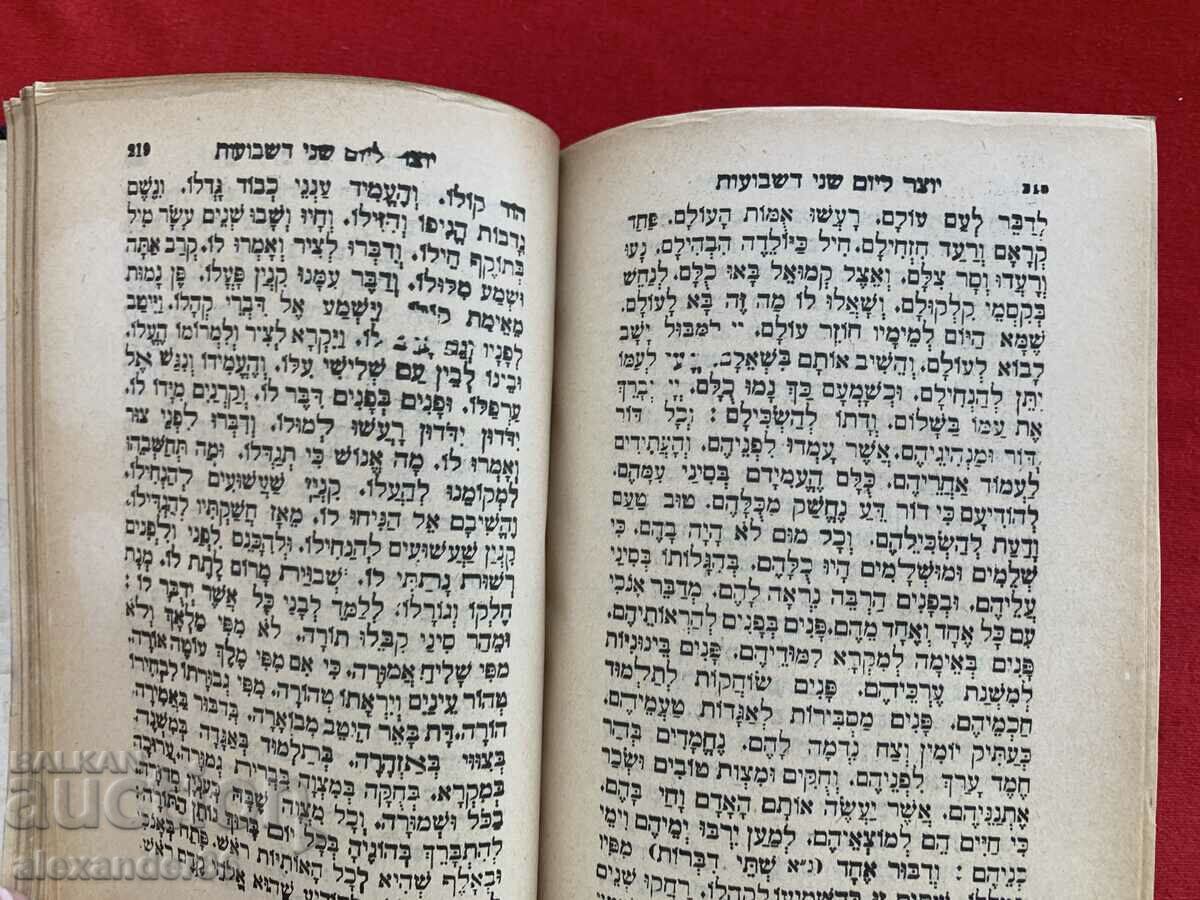 יוצר ליום שני דשבועות
לְדַבֵּר לְעַם עוֹלָם. רָעֲשׁוּ אֻמּוֹת הָעוֹלָם. פַּחַד
קְרָאָם וְרַעַד הִזְחִילָם. חִיל כַּיּוֹלֵדָה הִבְהִילָם. נָעוּ
וְרָעֲדוּ וְסָר צִלָּם. וְאֵצֶל קְמוּאֵל בָּאוּ כֻלָּם. לְנַחֵשׁ
בְּקִסְמֵי קִלְקוּלָם. וְשָׁאֲלוּ לוֹ מַה זֶּה בָּא לָעוֹלָם.
שֶׁמָּא הַיּוֹם לְמֵימָיו חוֹזֵר עוֹלָם. יְיָ לַמַּבּוּל יָשָׁב
לָבוֹא לְעוֹלָם. וְהֵשִׁיב אוֹתָם לְעַמּוֹ
יִתֵּן לְהַנְחִילָם. וּכְשָׁמְעָם כַּךְ נָמוּ כֻלָּם. יְיָ יְבָרֵךְ
אֶת עַמּוֹ בַשָּׁלוֹם. וְדָתוֹ לְהַשְׂכִּילָם: וְכָל דּוֹר
וָדוֹר וּמַנְהִיגֵיהֶם. אֲשֶׁר עָמְדוּ לִפְנֵיהֶם. וְהָעֲתִידִים
לַעֲמוֹד אַחֲרֵיהֶם. כֻּלָּם הֶעֱמִידָם בְּסִינַי עִמָּהֶם.
לְהוֹדִיעָם כִּי דוֹר דֵּעָ נֶחֱשַׁק מִכֻּלָּהֶם. טוּב טַעַם
וָדַעַת לְהַשְׂכִּילֵהֶם. וְכָל מוּם לֹא הָיָה בָהֶם. כִּי
שְׁלֵמִים וּמוּשְׁלָמִים הָיוּ כֻלָּהֶם. בְּהִגָּלוֹתוֹ בְּסִינַי
עֲלֵיהֶם. וּבְפָנִים הַרְבֵּה נִרְאָה לָהֶם. מְדַבֵּר אָנֹכִי
עִם כָּל אֶחָד וְאֶחָד מֵהֶם. פָּנִים בְּפָנִים לְהַרְאוֹתֵיהֶם.
פָּנִים בְּאֵימָה לְמִקְרָא לִמּוּדֵיהֶם. פָּנִים בֵּינוֹנִיּוֹת
לְמִשְׁנַת עֲרָכֵיהֶם. פָּנִים שׂוֹחֲקוֹת לְתַלְמוּד
חַכְמֵיהֶם. פָּנִים מַסְבִּירוֹת לְאַגָּדוֹת טַעֲמֵיהֶם.
כְּעַתִּיק יוֹמִין וְצַח נִדְמָה לָהֶם. נֶחֱמָדִים בְּהַר
חֶמֶד עָרַךְ לִפְנֵיהֶם. וְחֻקִּים וּמִצְוֹת טוֹבִים וּשְׂכַר
אֶתְנַנֵּיהֶם. אֲשֶׁר יַעֲשֶׂה אוֹתָם הָאָדָם וָחַי בָּהֶם.
כִּי חַיִּים הֵם לְמוֹצְאֵיהֶם. לְמַעַן יִרְבּוּ יְמֵיהֶם וִימֵי
בְנֵיהֶם: וְדִבּוּר אֶחָד (נ״א שְׁתֵּי דִּבְּרוֹת) מִפִּיו
219 יוצר ליום שני דשבועות
הוֹד קוֹלוֹ. וְהֶעֱמִיד עַנְנֵי כְבוֹד גָּדְלוֹ. וְגֶשֶׁם
נְדָבוֹת הֱנִיפוֹ וְהִזִּילוֹ. וְחָיוּ וְשָׁבוּ שְׁנֵים עָשָׂר מִיל
בְּתוֹקֶף חֵילוֹ. וְדִבְּרוּ לְצִיר וְאָמְרוּ לוֹ. קְרַב אַתָּה
וּשְׁמַע מִלּוּלוֹ. וְדַבֵּר עִמָּנוּ קִנְיַן פָּעֳלוֹ. פֶּן נָמוּת
מֵאֵימַת וַיִּשְׁמַע אֶל דִּבְרֵי קְהָלוֹ. וַיִּיטַב
לְפָנָיו לוֹ. וַיִּקְרָא לְצִיר וְלִמְרוֹמוֹ הֶעֱלוֹ.
וּבֵינוֹ לְבֵין עַם שְׁלִישִׁי עִלּוֹ. וְהֶעֱמִידוֹ וְנִגַּשׁ אֶל
עֲרָפֶלּוֹ. וּפָנִים בְּפָנִים דִּבֶּר לוֹ. וְקַרְנַיִם מִיָּדוֹ לוֹ.
יִדֹּדוּן יִדֹּדוּן רָעֲשׁוּ לְמוּלוֹ. וְדִבְּרוּ לִפְנֵי צוּר
וְאָמְרוּ לוֹ. מָה אֱנוֹשׁ כִּי תְגַדְּלוֹ. וּמַה תְּחַשְּׁבֵהוּ
לִמְקוֹמֵנוּ לְהַעֲלוֹ. קִנְיַן שַׁעֲשׁוּעִים לְהַנְחִילוֹ.
וֶהֱשִׁיבָם אֵל הַנִּיחוּ לוֹ. מֵאָז חֲשַׁקְתִּיו לְהַגְדִּילוֹ.
קִנְיַן שַׁעֲשׁוּעִים לְהַנְחִילוֹ. וּלְהִכָּנֵס לִפְנַי וְלִפְנִים
רְשׁוּת נָתַתִּי לוֹ. שְׁבוּיַת מָרוֹם לָתֶת לוֹ. מְנָת
חֶלְקוֹ וְגוֹרָלוֹ. לְלַמֵּד לְבָנַי כָּל אֲשֶׁר יְדֻבַּר לוֹ:
וּמֵהַר סִינַי קִבְּלוּ תוֹרָה. לֹא מִפִּי מַלְאָךְ וְלֹא
מִפִּי שָׁלִיחַ אֲמוּרָה. כִּי אִם מִפִּי מֶלֶךְ עוֹטֶה אוֹרָה.
טְהוֹר עֵינַיִם וְיִרְאָתוֹ טְהוֹרָה. מִפִּי גְבוּרָתוֹ לִבְחִירוֹ
הוֹרָה. דָּת בָּאֵר הֵיטֵב מְבוֹאָרָה. בְּדִבּוּר בַּאֲמִירָה.
בְּצִוּוּי בְּאַזְהָרָה. בְּתַלְמוּד בְּאַגָּדָה. בְּמִשְׁנָה.
בְּמִקְרָא. בְּחֻקָּה. בְּמִצְוָה בִּבְרִית גְּמוּרָה. עֲרוּכָה
בַכֹּל וּשְׁמוּרָה. כָּל מִצְוָה שֶׁבָּהּ סְדוּרָה.
לְהִתְבָּרֵךְ בְּהוֹגֶיהָ בְּכָל יוֹם בָּרוּךְ נוֹתֵן תּוֹרָה:
וּבְאָלֶף שֶׁהִיא לְכָל הָאוֹתִיּוֹת רֹאשׁ. פָּתַח בְּאָנֹכִי
BALKAN
auction
alexander